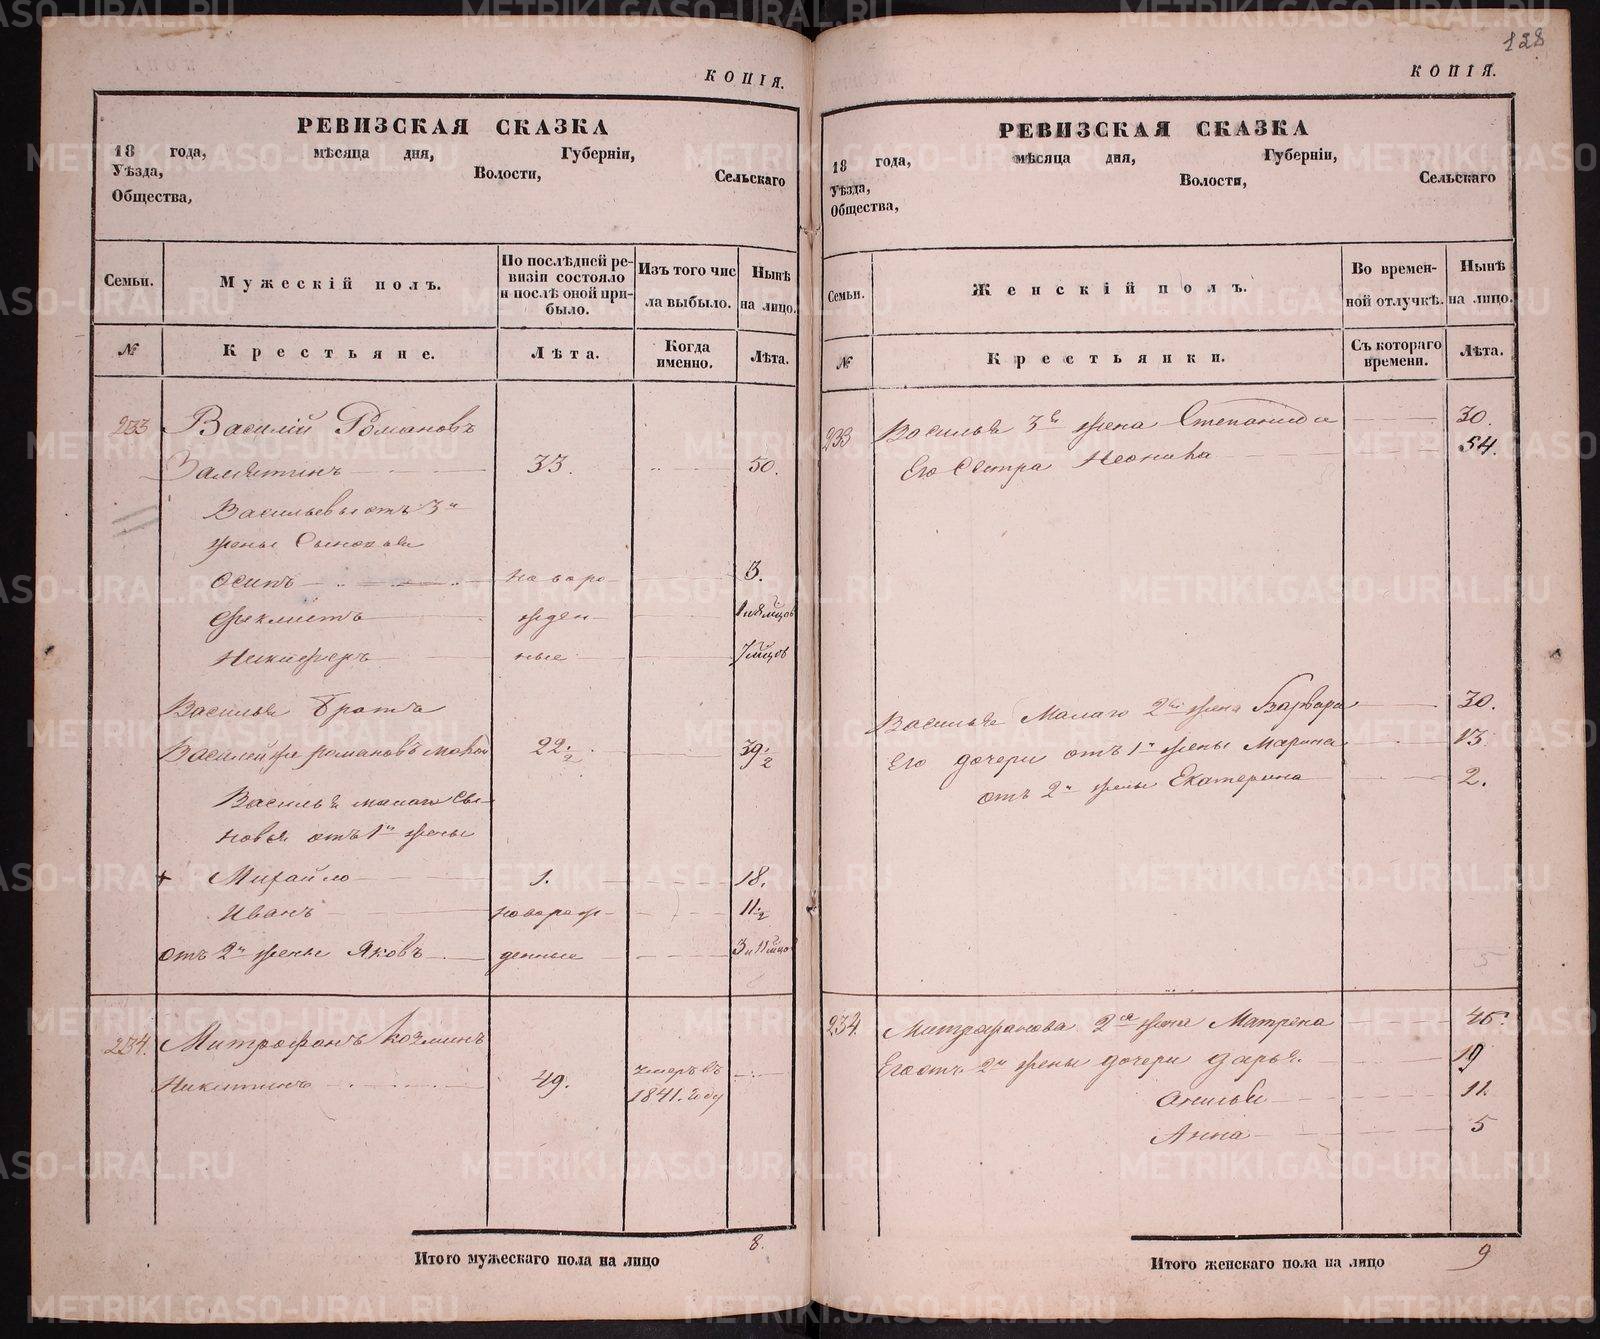 128
КОПІЯ.
РЕВИЗСКАЯ СКАЗКА
18 года, мѣсяца дня, Губерніи,
Уѣзда, Волости, Сельскаго
Общества,
Семьи. Мужескій полъ. По послѣдней ревизіи состояло и послѣ оной прибыло. Изъ того числа выбыло. Нынѣ на лицо.
№ Крестьяне. Лѣта. Когда именно. Лѣта.
233 Василій Романовъ
Замятинъ 33. 50.
Васильевы отъ 3й
жены Сыновья
Осипъ новоро 3.
Феклистъ жден 1 и 8 мцов
Никифоръ ные 7 мцов
Василья Братъ
Василей же Романовъ малой 22 1/2 39 1/2
Василья малаго Сы-
новья отъ 1й жены
Михайло 1. 18.
Иванъ новорож- 11 1/2
отъ 2й жены Яковъ денные 3 и 11 мцо
234. Митрофанъ Козминъ
Никитинъ 49. умеръ въ
1841. году
Итого мужескаго пола на лицо 8.
КОПІЯ.
РЕВИЗСКАЯ СКАЗКА
18 года, мѣсяца дня, Губерніи,
Уѣзда, Волости, Сельскаго
Общества,
Семьи. Женскій полъ. Во временной отлучкѣ. Нынѣ на лицо.
№ Крестьянки. Съ котораго времени. Лѣта.
233 Василья 3я жена Степанида 30.
Его Сестра 54.
Василья Малаго 2я жена Варвара 30.
Его дочери отъ 1й жены Марина 13
отъ 2й жены Екатерина 2.
234. Митрофанова 2я жена Матрена 45.
Его отъ 2й жены дочери Дарья. 19
11.
Анна 5
Итого женскаго пола на лицо 9
METRIKI.GASO-URAL.RU